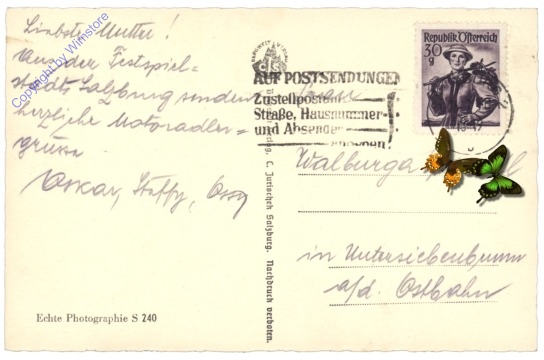 Liebste Mutter!
Aus der Festspiel-
stadt Salzburg senden
herzliche Motoradler-
grüsse
Oskar, Steffy, Ossy
Copyright by Wimstore
Echte Photographie S 240
C. Jurischek Salzburg. Nachdruck verboten.
AUF POSTSENDUNGEN
Zustellpostamt
Straße, Hausnummer
und Absender
angeben!
Republik Österreich
30
g
Walburga
in Untersiebenbrunn
a/d. Ostbahn